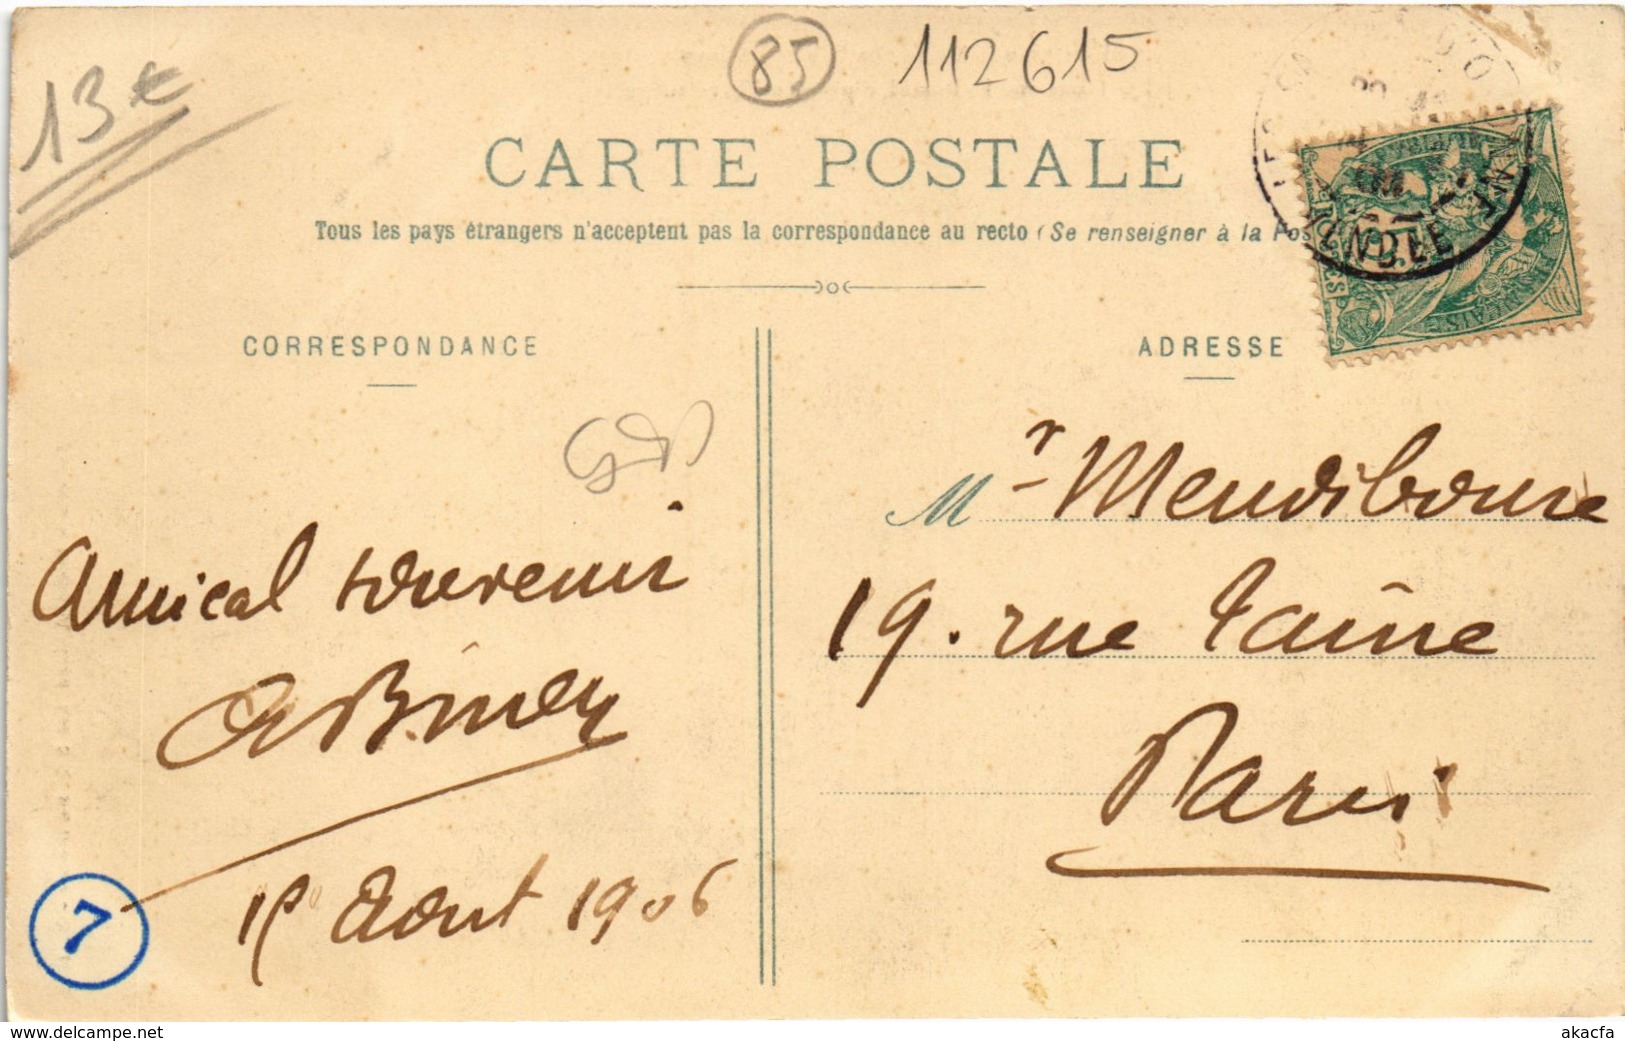 13 €
85
112615
CARTE POSTALE
Tous les pays étrangers n'acceptent pas la correspondance au recto (Se renseigner à la Pos
VENDÉE
CORRESPONDANCE
ADRESSE
Amical souvenir
Août 1906
7
Mr Mendiboure
19. rue Taine
Paris
www.delcampe.net
akacfa